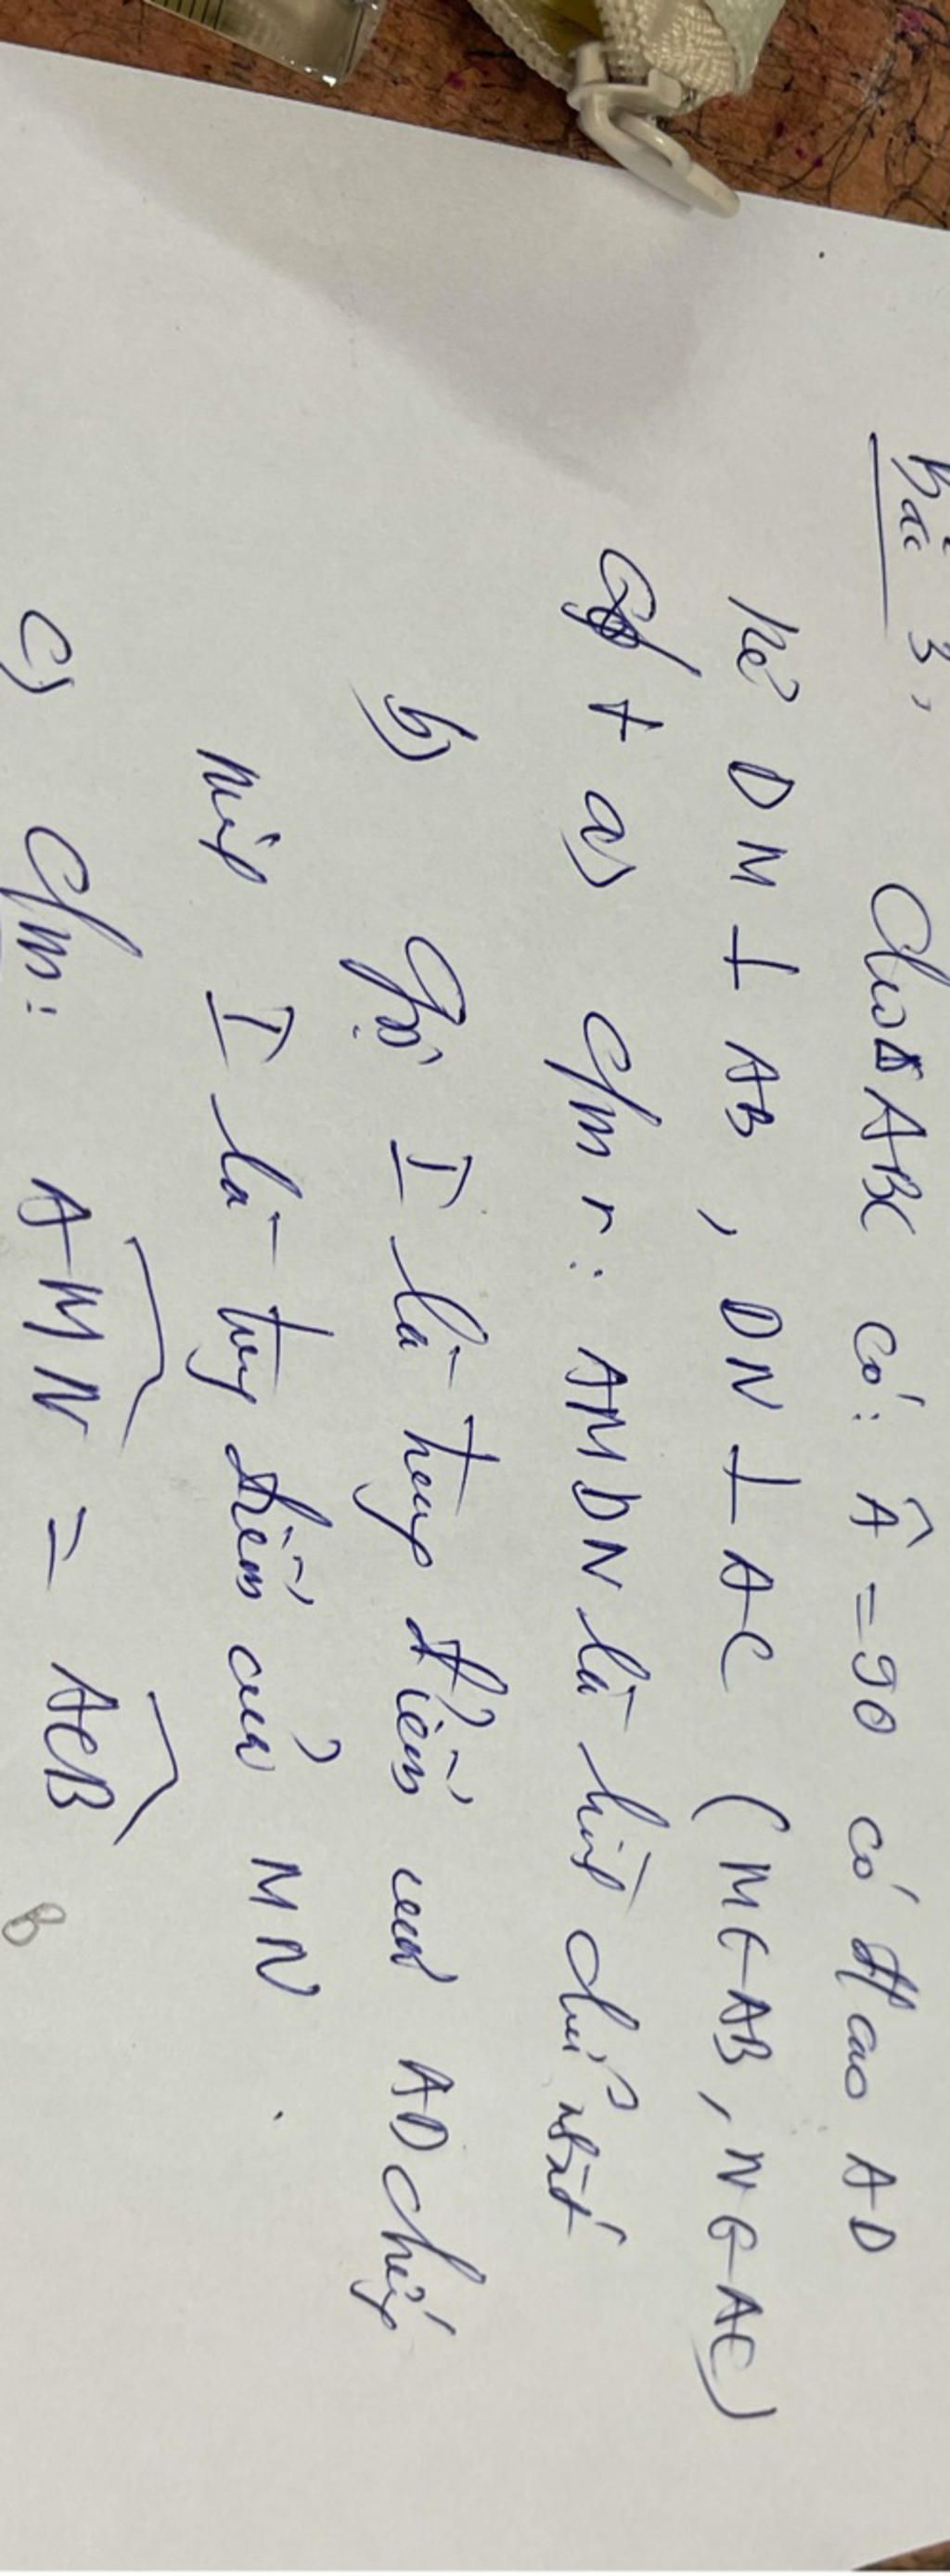 Bài 3, Cho ΔABC có: Â = 90 có đ/cao AD
kẻ DM ⊥ AB, DN ⊥ AC (M∈AB, N∈AC)
a) C/m r: AMDN là hình chữ nhật
b) Gọi I là trung điểm của AD chứng
minh I là trung điểm của MN.
c) C/m: AMN = ACB
B